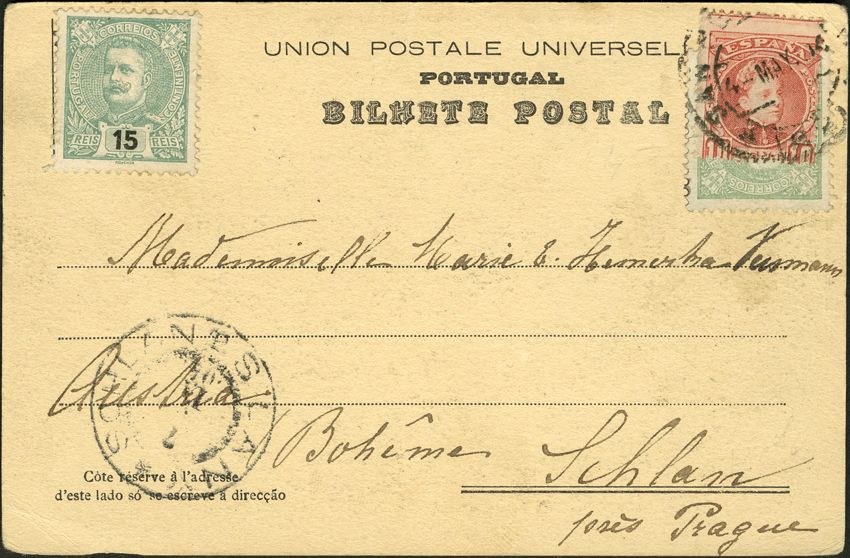 UNION POSTALE UNIVERSEL
PORTUGAL
BILHETE POSTAL
CORREIOS
PORTUGAL
CONTINENTE
REIS 15 REIS
ESPAÑA
MAY
CORREIOS
Mademoiselle Marie E.
Austria
Bohême
Schlan
près Prague
SCHLAN SLANÝ
Côte réserve à l'adresse
d'este lado só se escreve a direcção